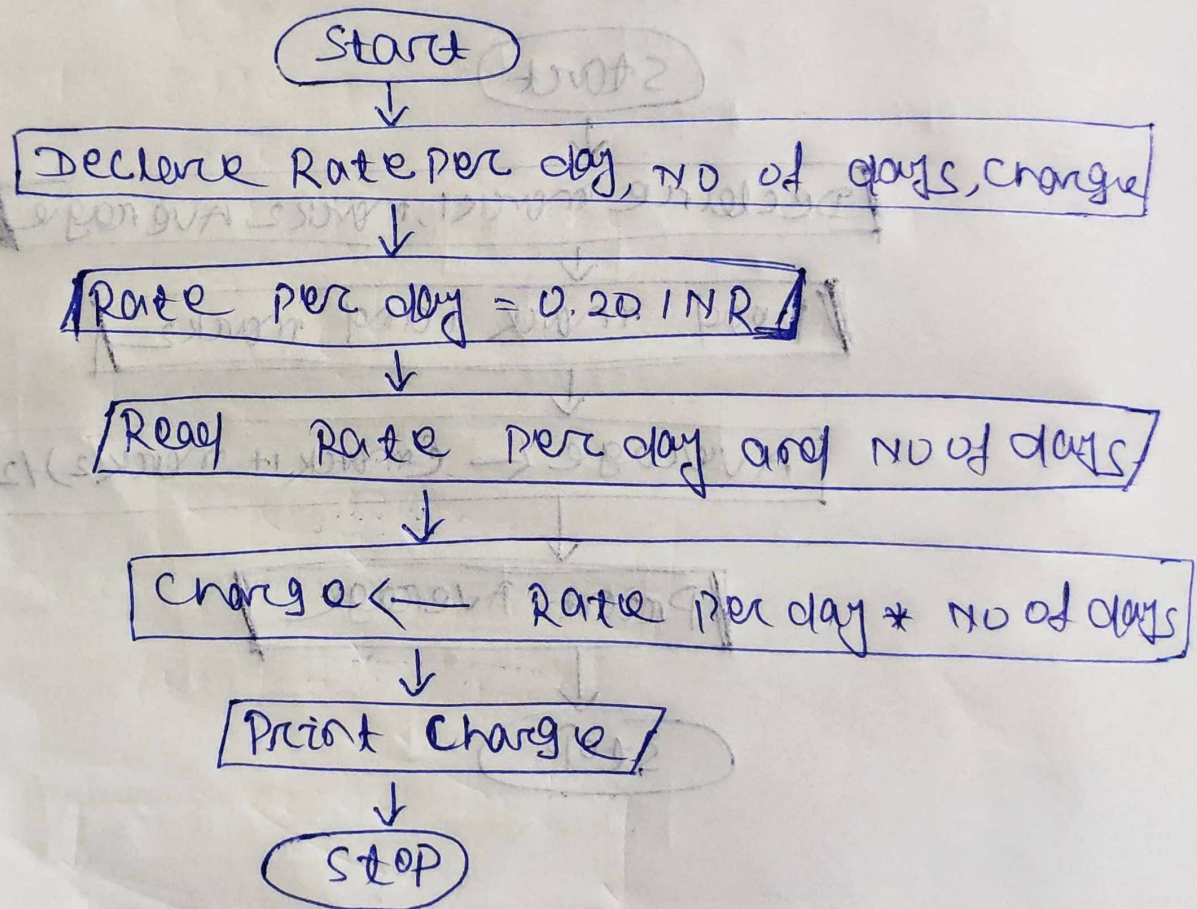 Start
Declare Rate per day, No of days, Charge
Rate per day = 0.20 INR
Read Rate per day and No of days
Charge ← Rate per day * No of days
Print Charge
Stop